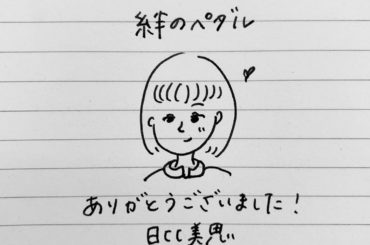 絆のペダル
ありがとうございました!
日CC美思